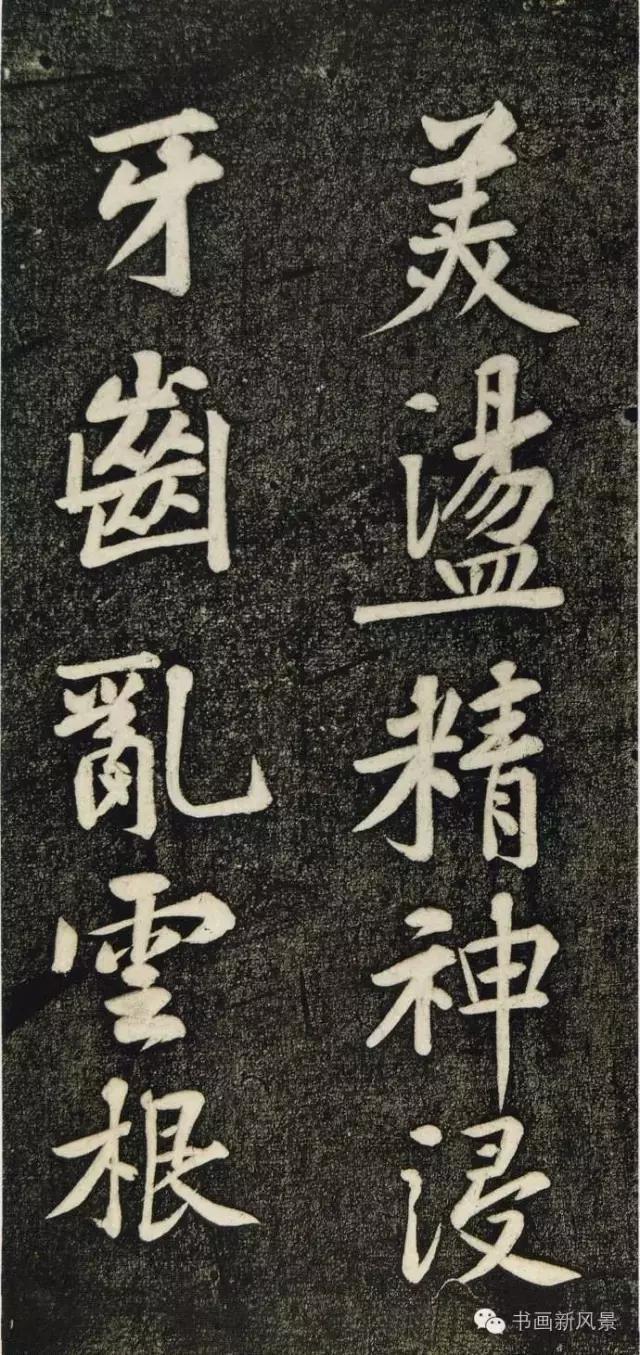 美盪精神浸
牙齒亂雲根
书画新风景